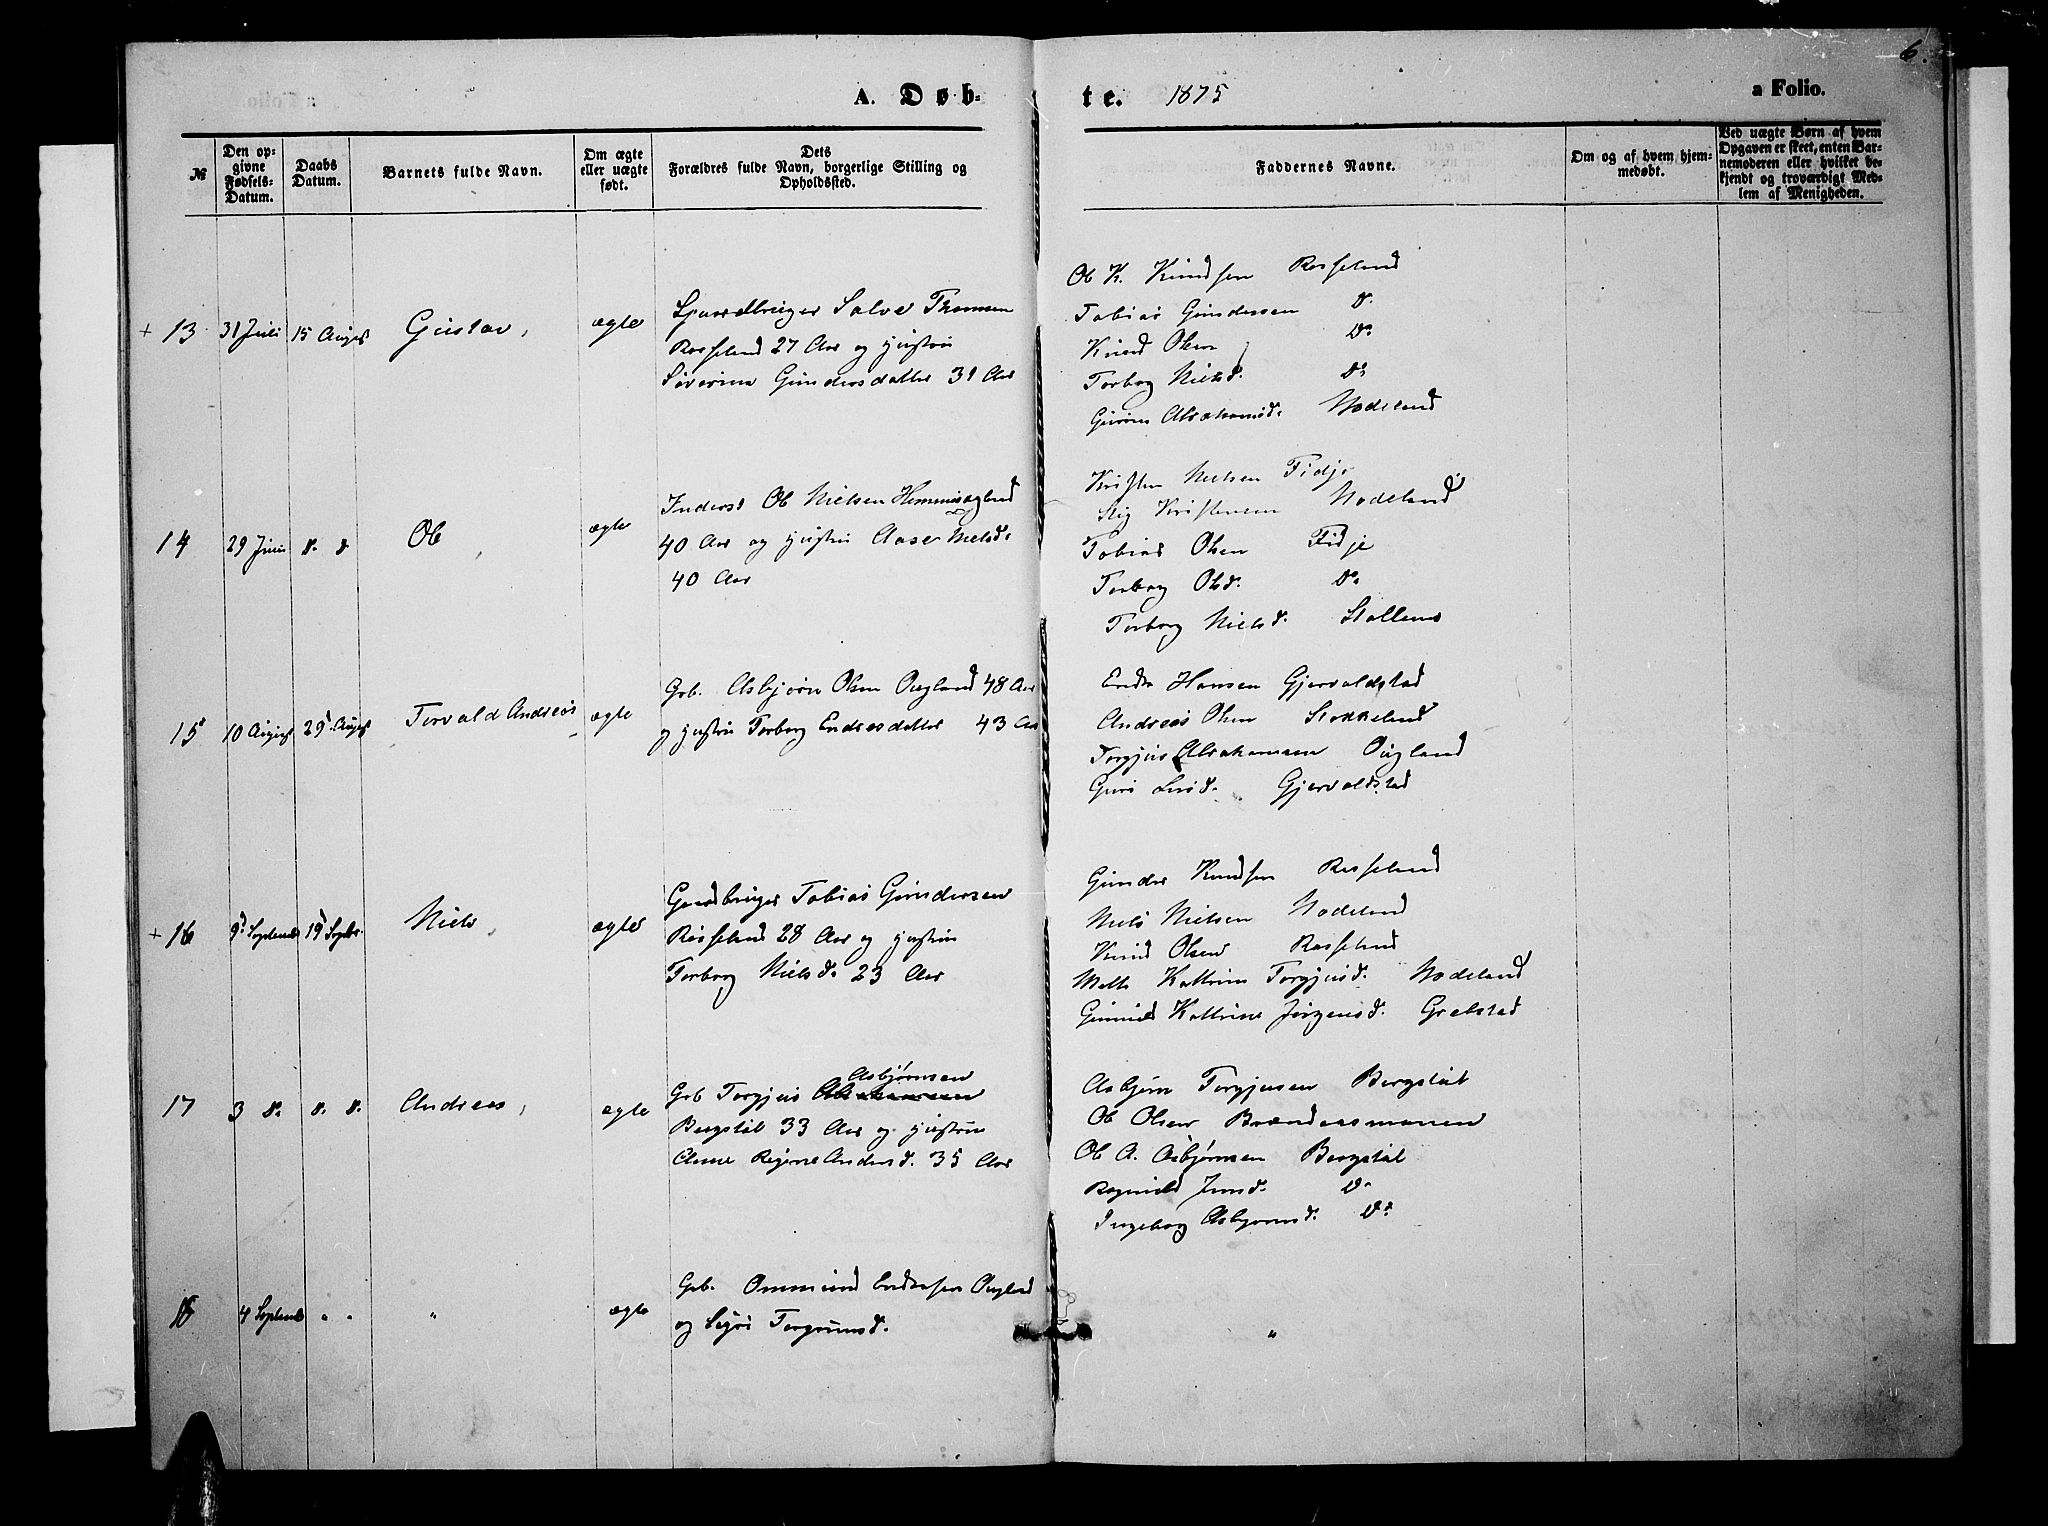 6.
A. Døb- te. 1875 a Folio.
№
Den op-
givne
Fødsels-
Datum.
Daabs
Datum.
Barnets fulde Navn.
Om ægte
eller uægte
født.
Dets
Forældres fulde Navn, borgerlige Stilling og
Opholdssted.
Faddernes Navne.
Om og af hvem hjem-
medøbt.
Ved uægte Børn af hvem
Opgaven er skeet, enten Bar-
nemoderen eller hvilket be-
kjendt og troværdigt Med-
lem af Menigheden.
+ 13 31 Juli 15 August Gustav, ægte
Salve Thomsen
Rosseland 27 Aar og hustru
Severine Gundersdatter 31 Aar
Ole K. Knudsen Rosseland
Tobias Gundersen d.
Knud Olsen Do
Torborg Nielsd. do
Abrahamsd. Nodeland
14 29 Juni d. d Ole, ægte
Inderst Ole Nielsen
40 Aar og hustru Aase Nielsd.
40 Aar
Kristen Nielsen Fidje
Stig Kristensen Nodeland
Tobias Olsen Fidje
Torborg Olsd. Do
Torborg Nielsd. Stallemo
15 10 August 29 August Torvald Andreas ægte
Grb. Asbjørn Olsen Augland 48 Aar
og hustru Torborg Endresdatter 43 Aar
Endre Hansen Gjervoldstad
Andreas Olsen Stokkeland
Torgjus Abrahamsen Augland
Guri Gjervoldstad
+ 16 9d Septemb 19d Septbr. Niels, ægte
Gaardbruger Tobias Gundersen
Rosseland 28 Aar og hustru
Torborg Nielsd. 23 Aar
Gunder Knudsen Rosseland
Niels Nielsen Nodeland
Knud Olsen Rosseland
Mette Kattrine Torgjusd. Nodeland
Gunnild Kattrine Jørgensd. Grebstad
17 3 d. d. d. Andreas, ægte
Asbjørnsen
Grb Torgjus Abrahamsen
Bergstøl 33 Aar og hustru
Anne Regine Andersd. 35 Aar
Asbjørn Torgjusen Bergstøl
Ole Olsen Brændaasmonen
Ole A. Asbjørnsen Bergstøl
Ragnild Jensd. D.
Ingeborg Asbjørnsd. Do
18 4 Septemb " " " ægte
Grb. Ommund Endresen Augland
og Sigri Torgrimsd.
"